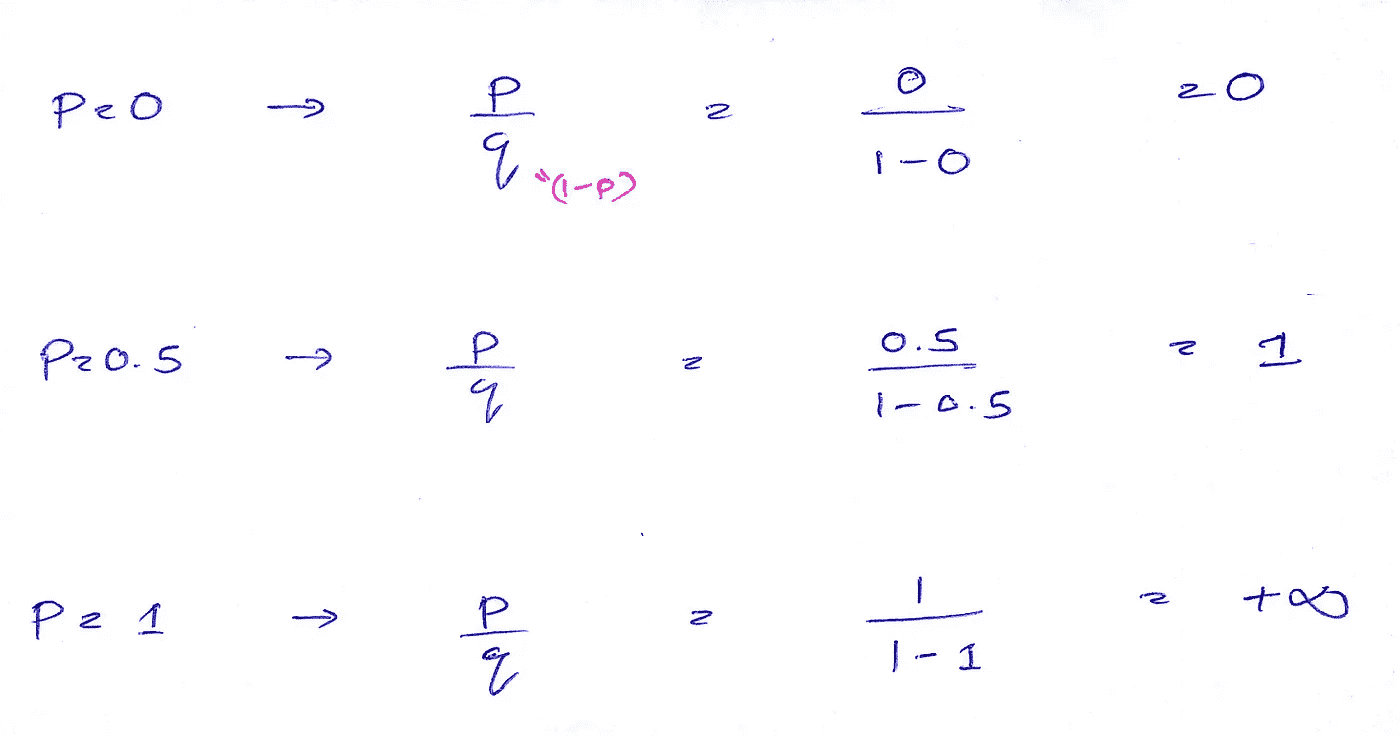 P = 0 → p/q "(1-p) = 0/(1-0) = 0
P = 0.5 → p/q = 0.5/(1-0.5) = 1
P = 1 → p/q = 1/(1-1) = +∞